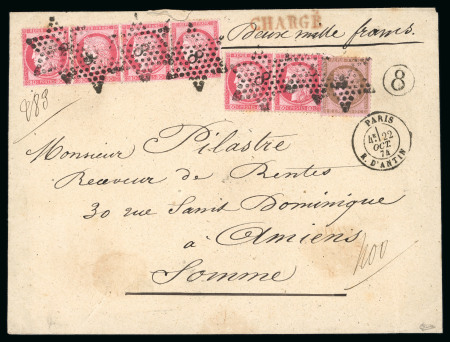 CHARGÉ
Deux mille francs.
8
283
PARIS
22
OCT
74
R. D'ANTIN
Monsieur Pilastre
Receveur de Rentes
30 rue Saint Dominique
à Amiens
Somme